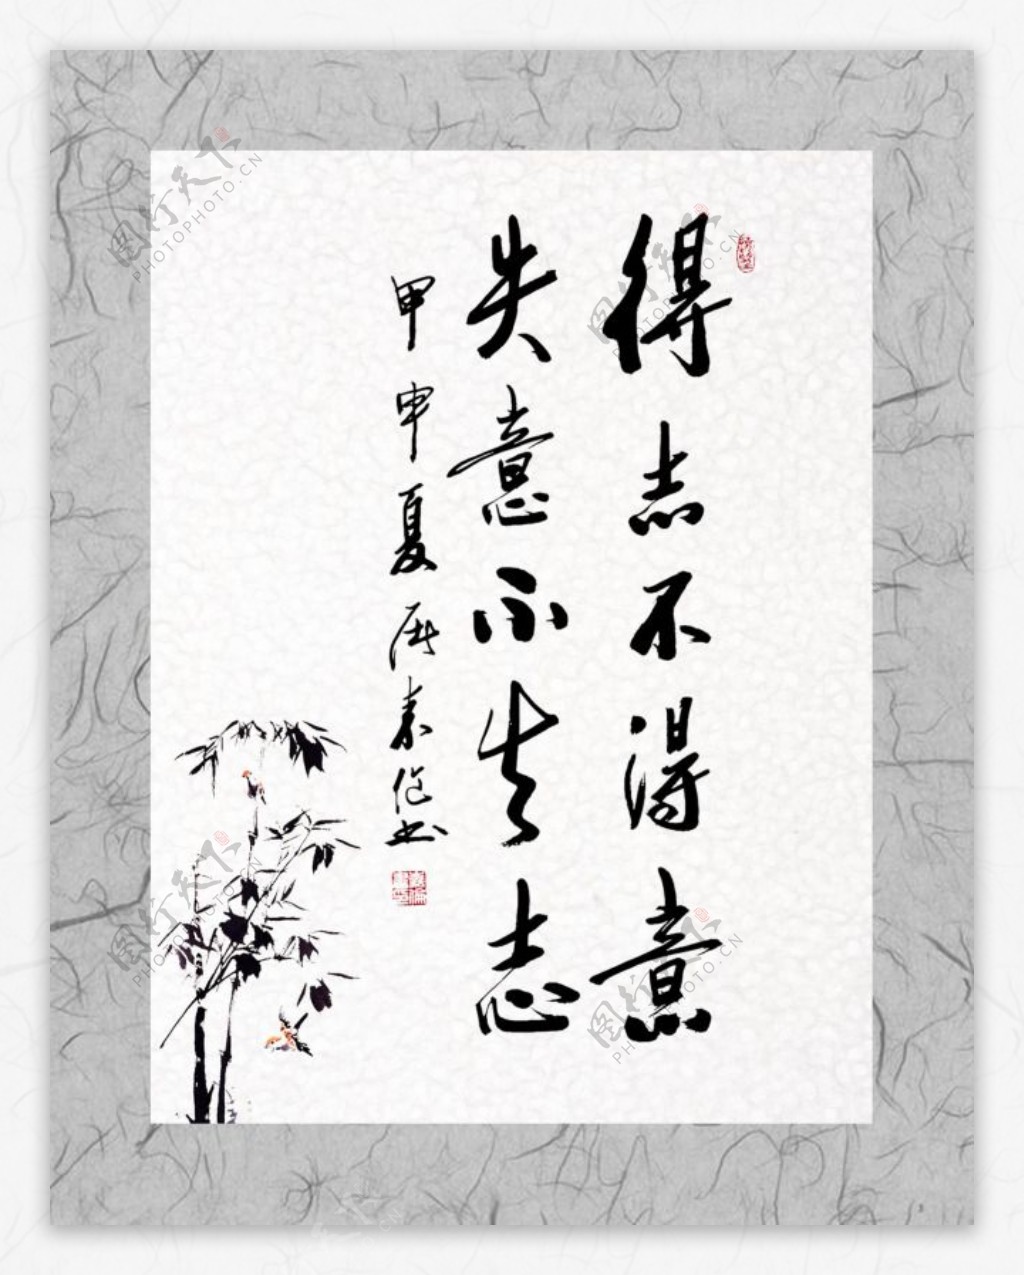 得志不得意
失意不失志
甲申夏
书
图行天下
PHOTOPHOTO.CN
图行天下
PHOTOPHOTO.CN
图行天下
PHOTOPHOTO.CN
图行天下
PHOTOPHOTO.CN